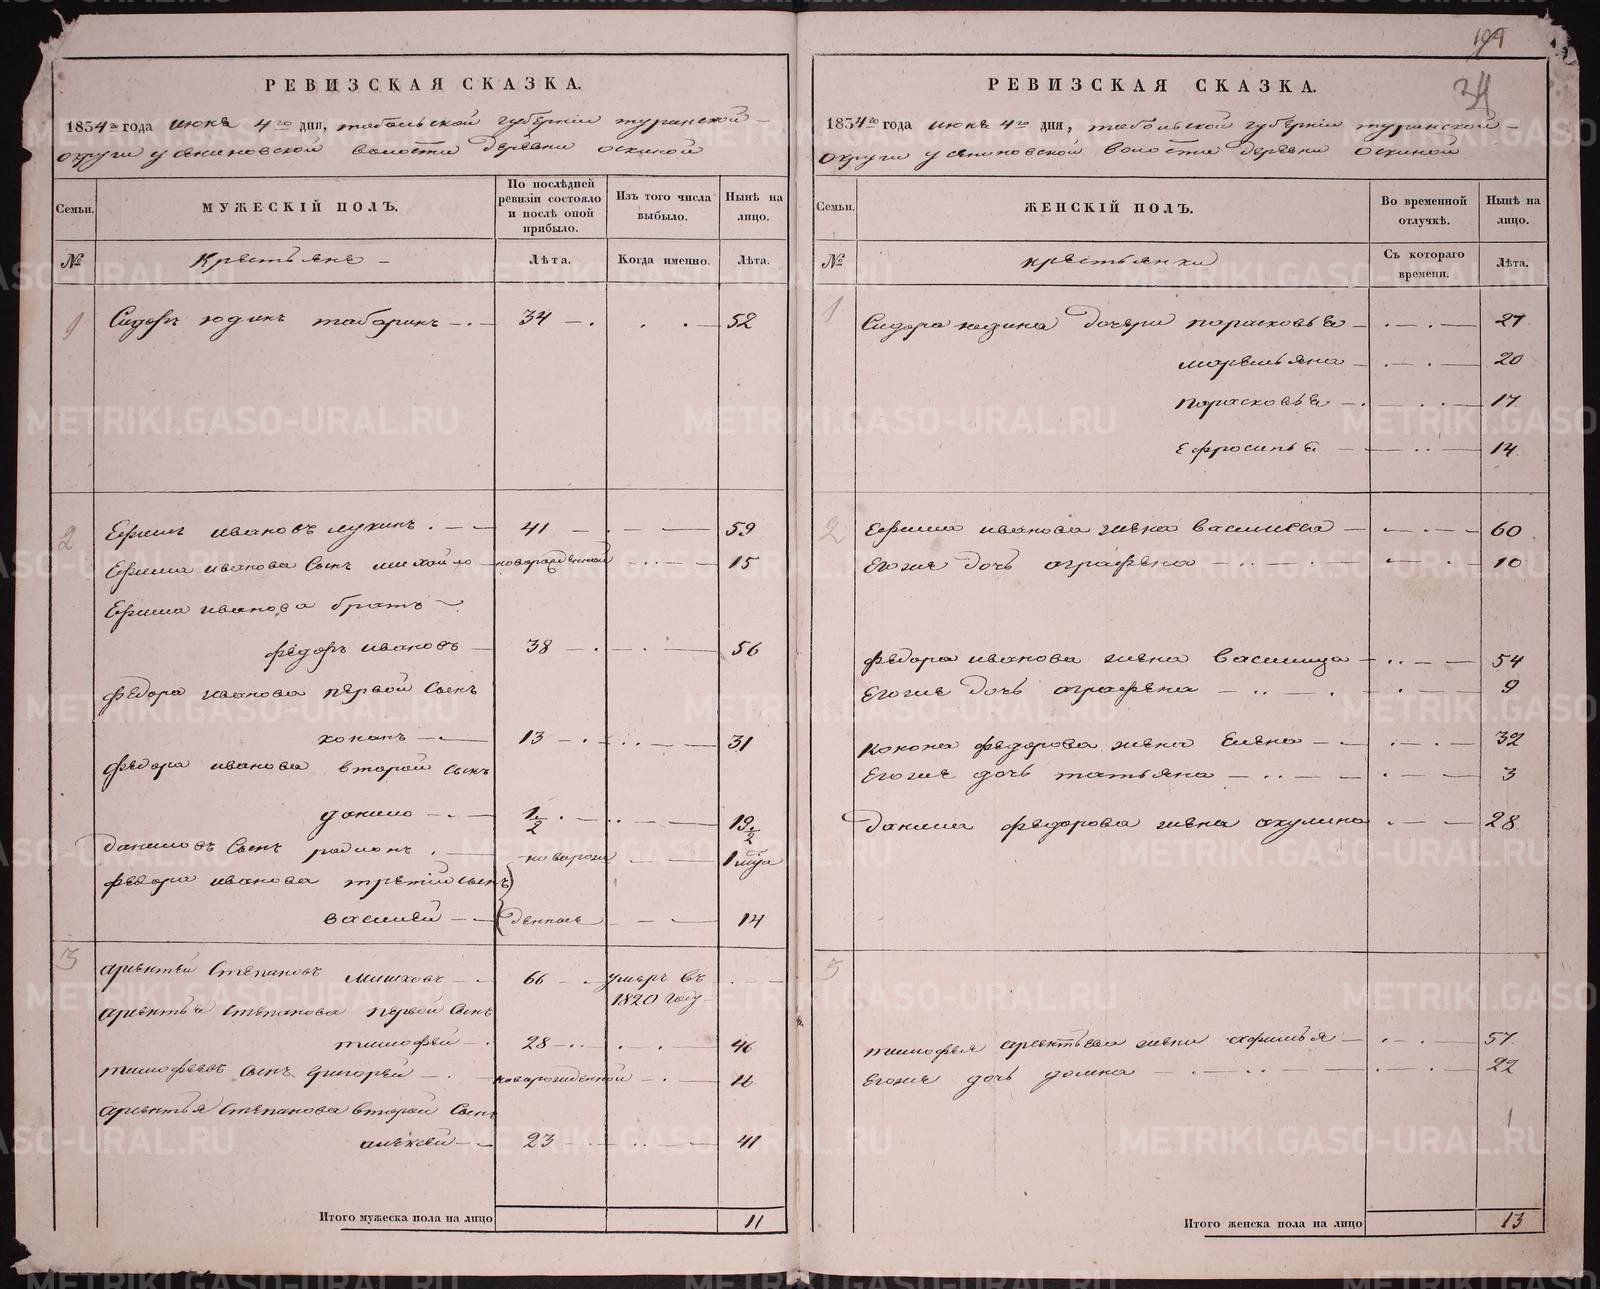 194
34
РЕВИЗСКАЯ СКАЗКА.
1834го года июня 4го дня, тобольской губернии туринской
округи усениновской волости деревни оскиной
Семьи.
МУЖЕСКІЙ ПОЛЪ.
По послѣдней ревизіи состояло и послѣ оной прибыло.
Изъ того числа выбыло.
Нынѣ на лицо.
№
Крестьяне
Лѣта.
Когда именно.
Лѣта.
1
Сидоръ юдинъ таборинъ 34 52
2
Ефимъ ивановъ лухинъ 41 59
Ефима иванова сынъ михайло новорожденной 15
Ефима иванова братъ
федоръ ивановъ 38 56
федора иванова первой сынъ
конанъ 13 31
федора иванова второй сынъ
данило 1/2 19 1/2
даниловъ сынъ родионъ новорож 1 мца
федора иванова третій сынъ
василей денные 14
3
арентей степановъ мишковъ 66 умеръ въ
1820 году
арентья степанова первой сынъ
тимофей 28 46
тимофеевъ сынъ григорей новорожденной 16
арентья степанова второй сынъ
алексей 23 41
Итого мужеска пола на лицо 11
РЕВИЗСКАЯ СКАЗКА.
1834го года июня 4го дня, тобольской губернии туринской
округи усениновской волости деревни оскиной
Семьи.
ЖЕНСКІЙ ПОЛЪ.
Во временной отлучкѣ.
Нынѣ на лицо.
№
крестьянки
Съ котораго времени.
Лѣта.
1
Сидора юдина дочери парасковья 27
маремьяна 20
парасковья 17
Ефросинья 14
2
Ефима иванова жена василиса 60
Егоже дочь аграфена 10
федора иванова жена василиса 54
Егоже дочь аграфена 9
конона федорова жена Елена 32
Егоже дочь татьяна 3
данила федорова жена акулина 28
3
тимофея арентьева жена афимья 57
Егоже дочь домна 22
Итого женска пола на лицо 13
METRIKI.GASO-URAL.RU